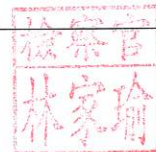 檢察官
林家瑜